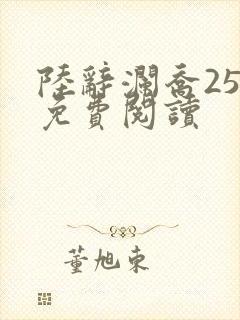 陸辭瀾喬25
免費閱讀
董旭東